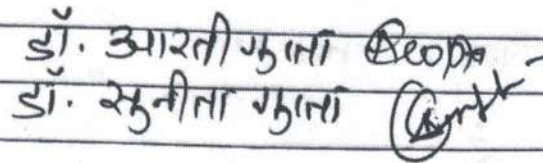 डॉ. आरती गुप्ता
डॉ. सुनीता गुप्ता